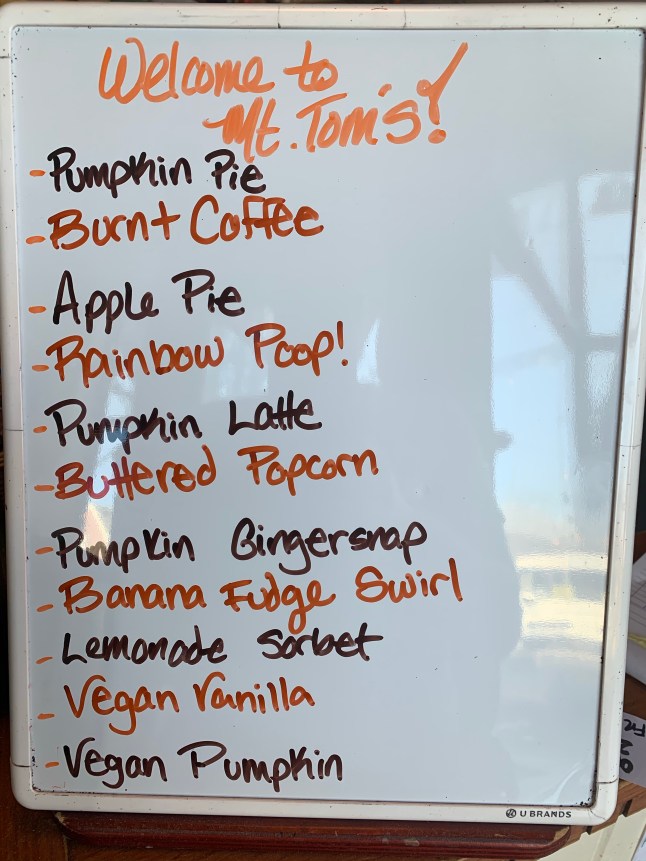 Welcome to
Mt. Tom's!
-Pumpkin Pie
-Burnt Coffee
-Apple Pie
-Rainbow Poop!
-Pumpkin Latte
-Buttered Popcorn
-Pumpkin Gingersnap
-Banana Fudge Swirl
-Lemonade Sorbet
-Vegan Vanilla
-Vegan Pumpkin
U BRANDS